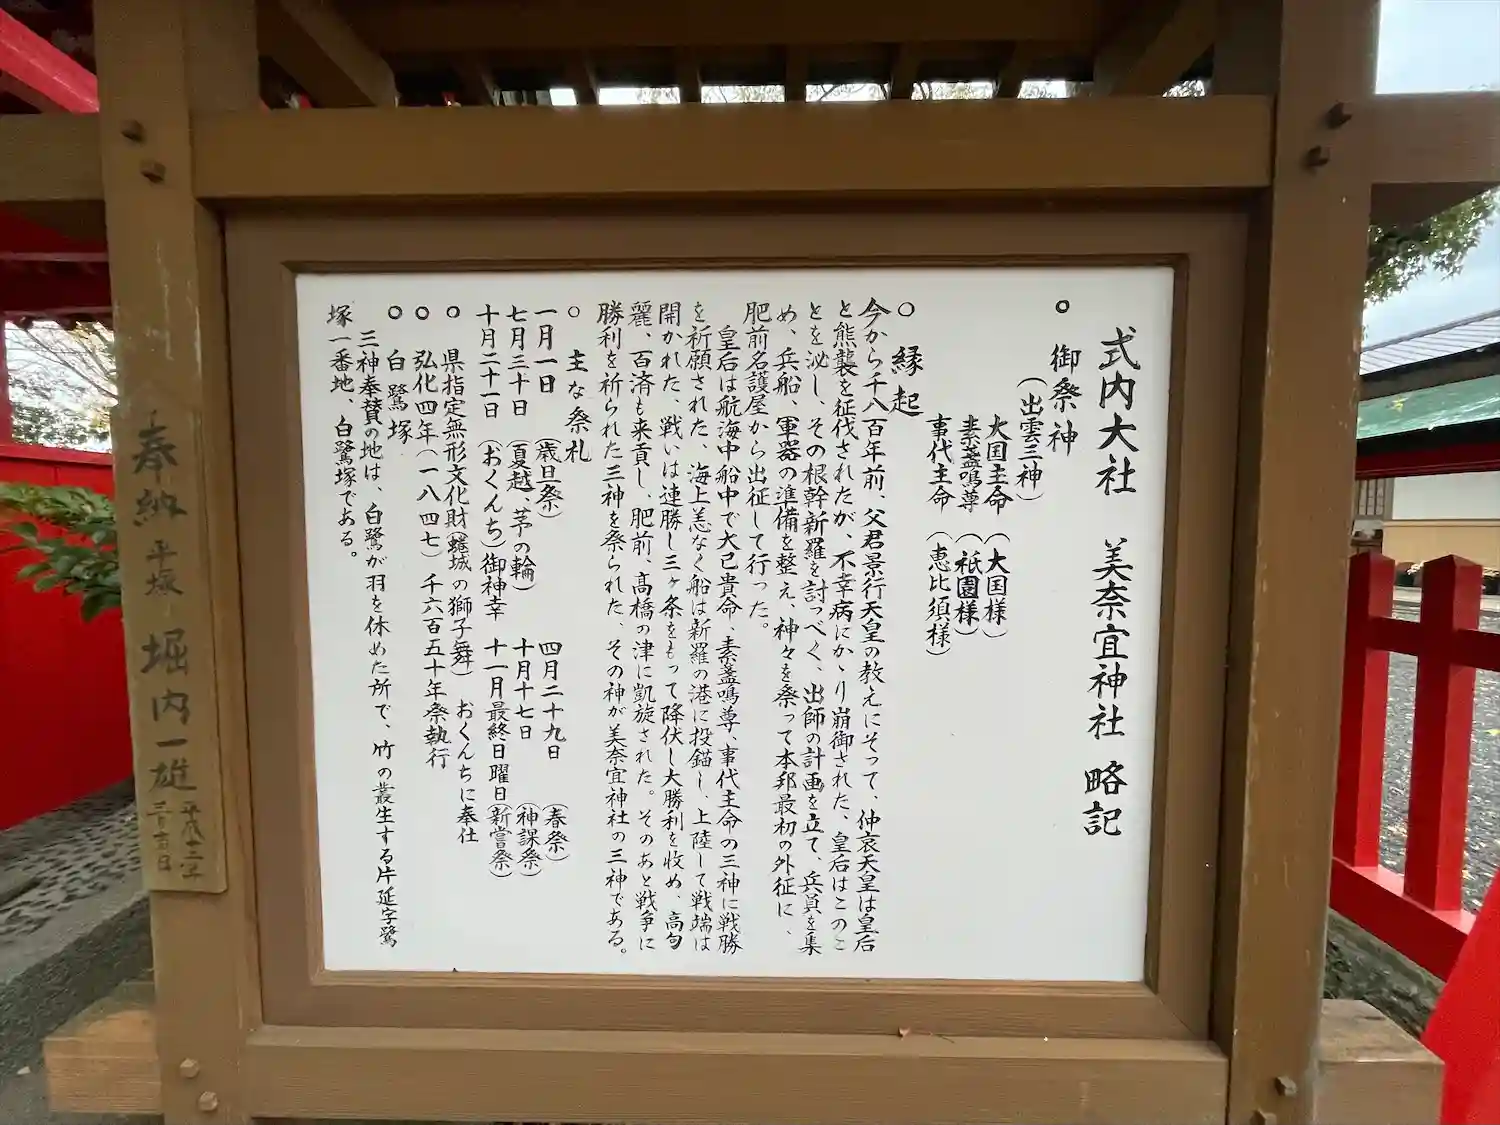 式内大社 美奈宜神社 略記
○ 御祭神
(出雲三神)
大国主命(大国様)
素盞鳴尊(祇園様)
事代主命(恵比須様)
○ 縁起
今から千八百年前、父君景行天皇の教えにそって、仲哀天皇は皇后
と熊襲を征伐されたが、不幸病にかゝり崩御された、皇后はこのこ
とを泌し、その根幹新羅を討つべく、出師の計画を立て、兵員を集
め、兵船、軍器の準備を整え、神々を祭って本邦最初の外征に、
肥前名護屋から出征して行った。
皇后は航海中船中で大己貴命、素盞鳴尊、事代主命の三神に戦勝
を祈願された、海上恙なく船は新羅の港に投錨し、上陸して戦端は
開かれた、戦いは連勝し三ヶ条をもって降伏し大勝利を收め、高句
麗、百済も来貢し、肥前、高橋の津に凱旋された。そのあと戦争に
勝利を祈られた三神を祭られた、その神が美奈宜神社の三神である。
○ 主な祭礼
一月一日 (歳旦祭) 四月二十九日 (春祭)
七月三十日 (夏越、茅の輪) 十月十七日 (神課祭)
十月二十一日 (おくんち)御神幸 十一月最終日曜日(新嘗祭)
○ 県指定無形文化財(蜷城の獅子舞) おくんちに奉仕
○ 弘化四年(一八四七) 千六百五十年祭執行
○ 白鷺塚
三神奉賛の地は、白鷺が羽を休めた所で、竹の叢生する片延字鷺
塚一番地、白鷺塚である。
奉納 平塚 堀内一雄
平成十三年